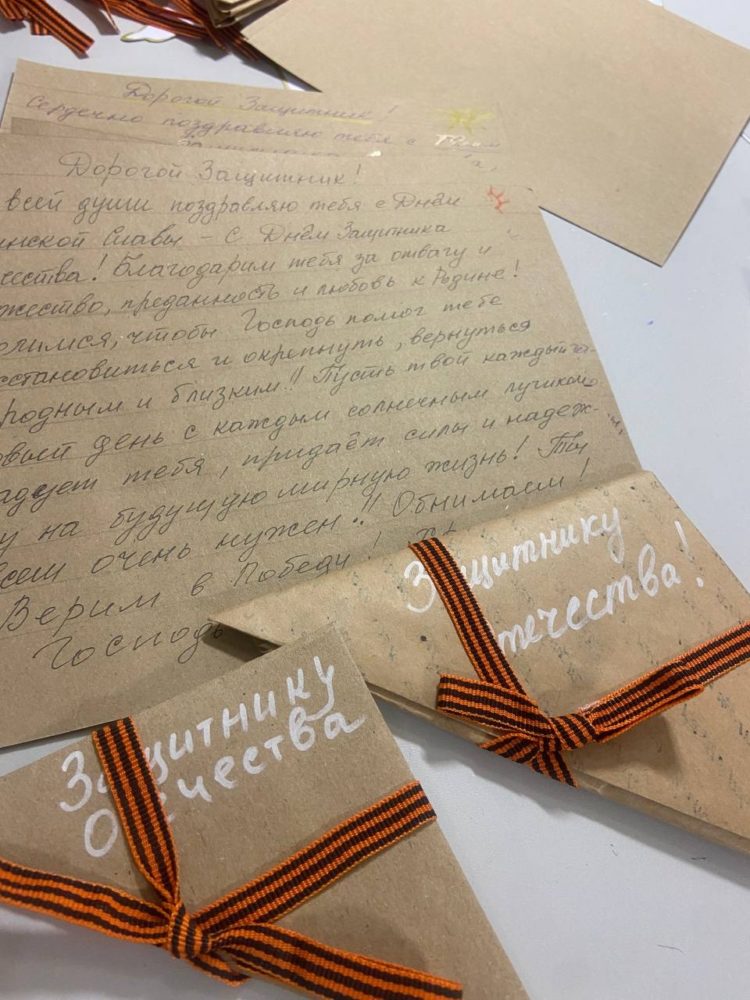 Дорогой Защитник!
Сердечно поздравляю тебя с
Дорогой Защитник!
всей души поздравляю тебя с Днём
инской Славы - С Днём Защитника
чества! Благодарим тебя за отвагу и
жество, преданность и любовь к Родине!
олимся, чтобы Господь помог тебе
сстановиться и окрепнуть, вернуться
родным и близким!! Пусть твой каждый
овый день с каждым солнечным лучиком
адует тебя, придаёт силы и надеж-
у на будущую мирную жизнь! Ты
всем очень нужен!! Обнимаем!
Верим в Победу!
Господь
Защитнику
течества!
Защитнику
Отечества